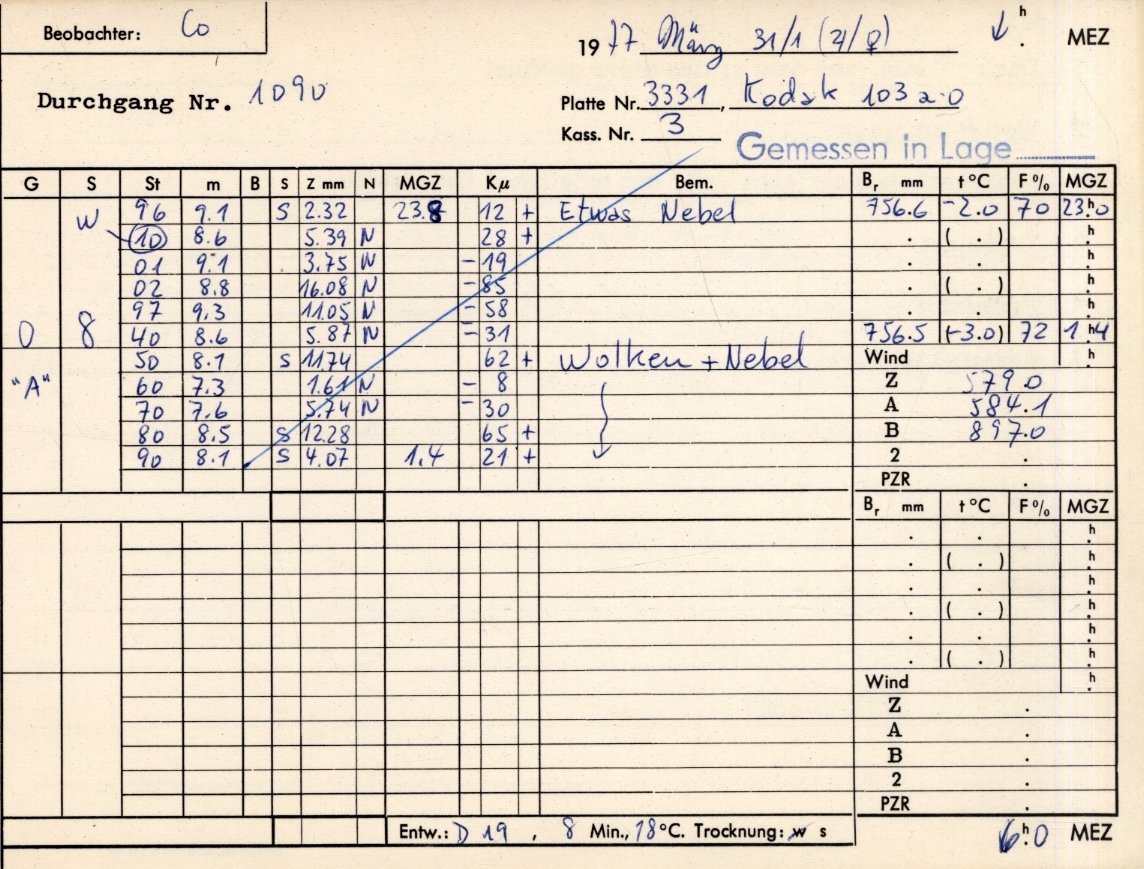 Beobachter: Co
1977 März 31/1 (♃/♀) h. MEZ
Durchgang Nr. 1090
Platte Nr. 3331, Kodak 103 a-O
Kass. Nr. 3
Gemessen in Lage
G S St m B S Z mm N MGZ Kμ Bem. Br mm t °C F % MGZ
W 96 9.1 S 2.32 23.8 12 + Etwas Nebel 756.6 -2.0 70 23h.0
10 8.6 5.39 N 28 + . ( . ) h.
01 9.1 3.75 N - 19 . . h.
02 8.8 16.08 N - 85 . ( . ) h.
97 9.3 11.05 N - 58 . . h.
0 8 40 8.6 5.87 N - 31 756.5 (-3.0) 72 1h.4
50 8.1 S 11.74 62 + Wolken + Nebel Wind h.
"A" 60 7.3 1.61 N - 8 Z 579.0
70 7.6 5.74 N - 30 A 584.1
80 8.5 S 12.28 65 + B 897.0
90 8.1 S 4.07 1.4 21 + 2 .
PZR .
Br mm t °C F % MGZ
. . h.
. ( . ) h.
. . h.
. ( . ) h.
. . h.
. ( . ) h.
Wind h.
Z .
A .
B .
2 .
PZR .
Entw.: D 19, 8 Min., 18 °C. Trocknung: w s
6h.0 MEZ